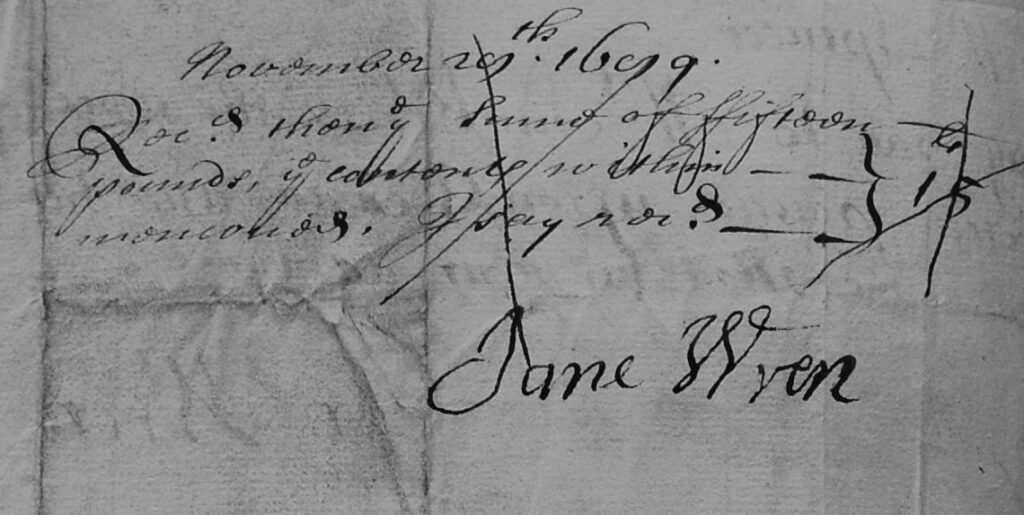 November 29th. 1699.
Recd. then ye sume of ffifteen — li
pounds, ye contents within — — } 15
mencioned. I say recd. — —
Jane Wren